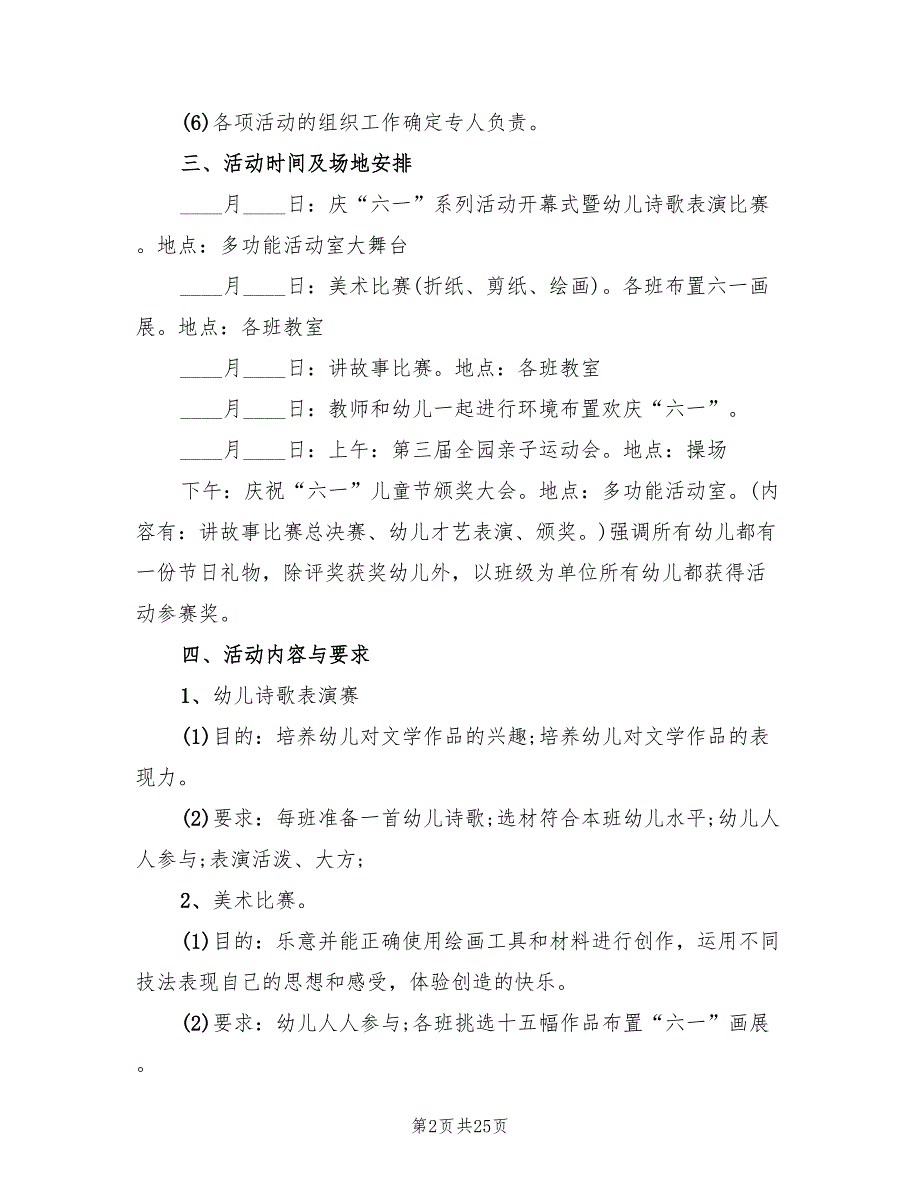 (6)各项活动的组织工作确定专人负责。
三、活动时间及场地安排
____月____日：庆“六一”系列活动开幕式暨幼儿诗歌表演比赛
。地点：多功能活动室大舞台
____月____日：美术比赛(折纸、剪纸、绘画)。各班布置六一画
展。地点：各班教室
____月____日：讲故事比赛。地点：各班教室
____月____日：教师和幼儿一起进行环境布置欢庆“六一”。
____月____日：上午：第三届全园亲子运动会。地点：操场
下午：庆祝“六一”儿童节颁奖大会。地点：多功能活动室。(内
容有：讲故事比赛总决赛、幼儿才艺表演、颁奖。)强调所有幼儿都有
一份节日礼物，除评奖获奖幼儿外，以班级为单位所有幼儿都获得活
动参赛奖。
四、活动内容与要求
1、幼儿诗歌表演赛
(1)目的：培养幼儿对文学作品的兴趣;培养幼儿对文学作品的表
现力。
(2)要求：每班准备一首幼儿诗歌;选材符合本班幼儿水平;幼儿人
人参与;表演活泼、大方;
2、美术比赛。
(1)目的：乐意并能正确使用绘画工具和材料进行创作，运用不同
技法表现自己的思想和感受，体验创造的快乐。
(2)要求：幼儿人人参与;各班挑选十五幅作品布置“六一”画展
。
第2页共25页